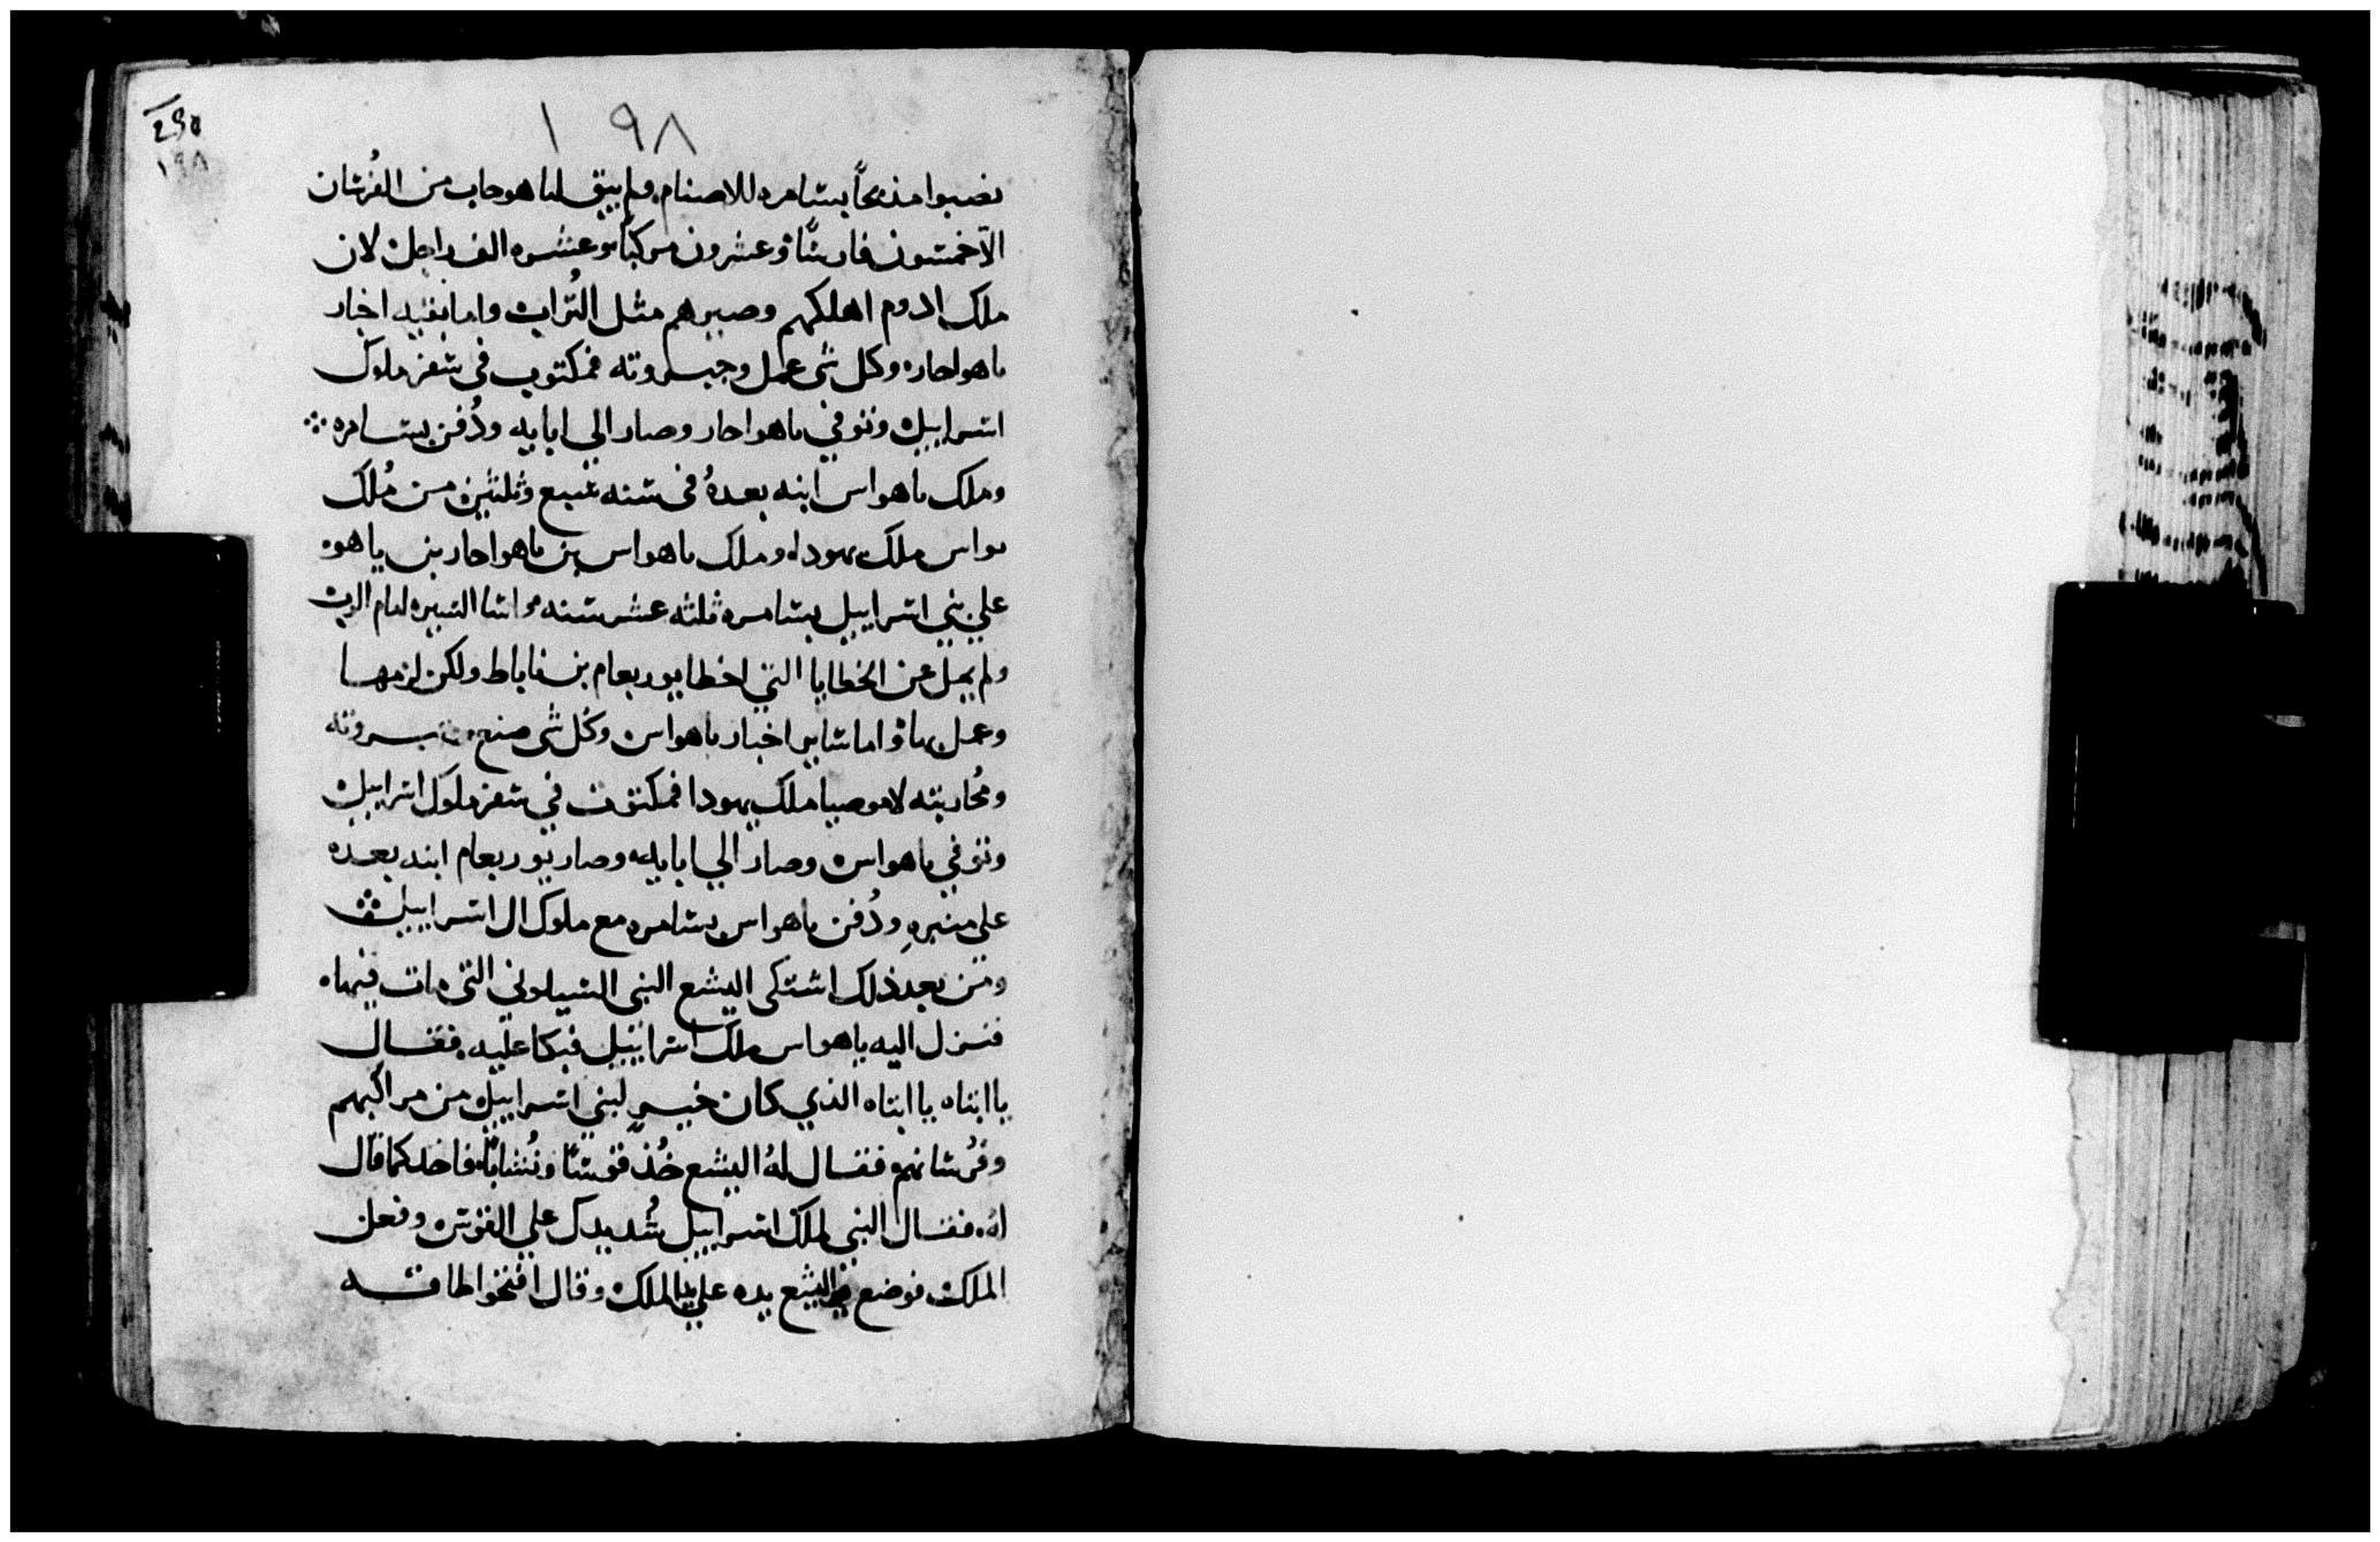 ١٩٨
١٩٨
نصبوا مذبحًا بسامره للاصنام ولم يبق لياهوحاب من الفُرسان
الا خمسون فارسًا وعشرون مركبًا وعشره الف راجل لان
ملك ادوم اهلكهم وصيرهم مثل التُراب واما بقيه اخبار
ياهواحاز وكل شى عمل وجبروته فمكتوب فى سفر ملوك
اسراييل وتوفي ياهواحاز وصار الي ابايه ودُفن بسامره
وملك ياهواس ابنه بعدهُ فى سنه سبع وثلثين من مُلك
يواس ملك يهودا وملك ياهواس بن ياهواحاز بن ياهو
علي بني اسراييل بسامره ثلثه عشر سنه واسا السيره امام الرب
ولم يمل عن الخطايا التي اخطا يوربعام بن ناباط ولكن لزمها
وعمل بها واما ساير اخبار ياهواس وكُل شى صنع
ومُحاربته لاموصيا ملك يهودا فمكتوب في سفر ملوك اسراييل
وتوفي ياهواس وصار الي ابايه وصار يوربعام ابنه بعده
علي منبره ودُفن ياهواس بسامره مع ملوك ال اسراييل
ومن بعد ذلك اشتكى اليشع النبى الشيلوني التى مات فيها
فنزل اليه ياهواس ملك اسراييل فبكا عليه فقال
يا ابتاه يا ابتاه الذي كان خير لبني اسراييل من مراكبهم
وفُرسانهم فقال لهُ اليشع خُذ قوسًا ونُشابًا فاخد كما قال
لهُ فقال النبي لملك اسراييل شُد يدك علي القوس وفعل
الملك فوضع اليشع يده علي يد الملك وقال افتحوا طاقه